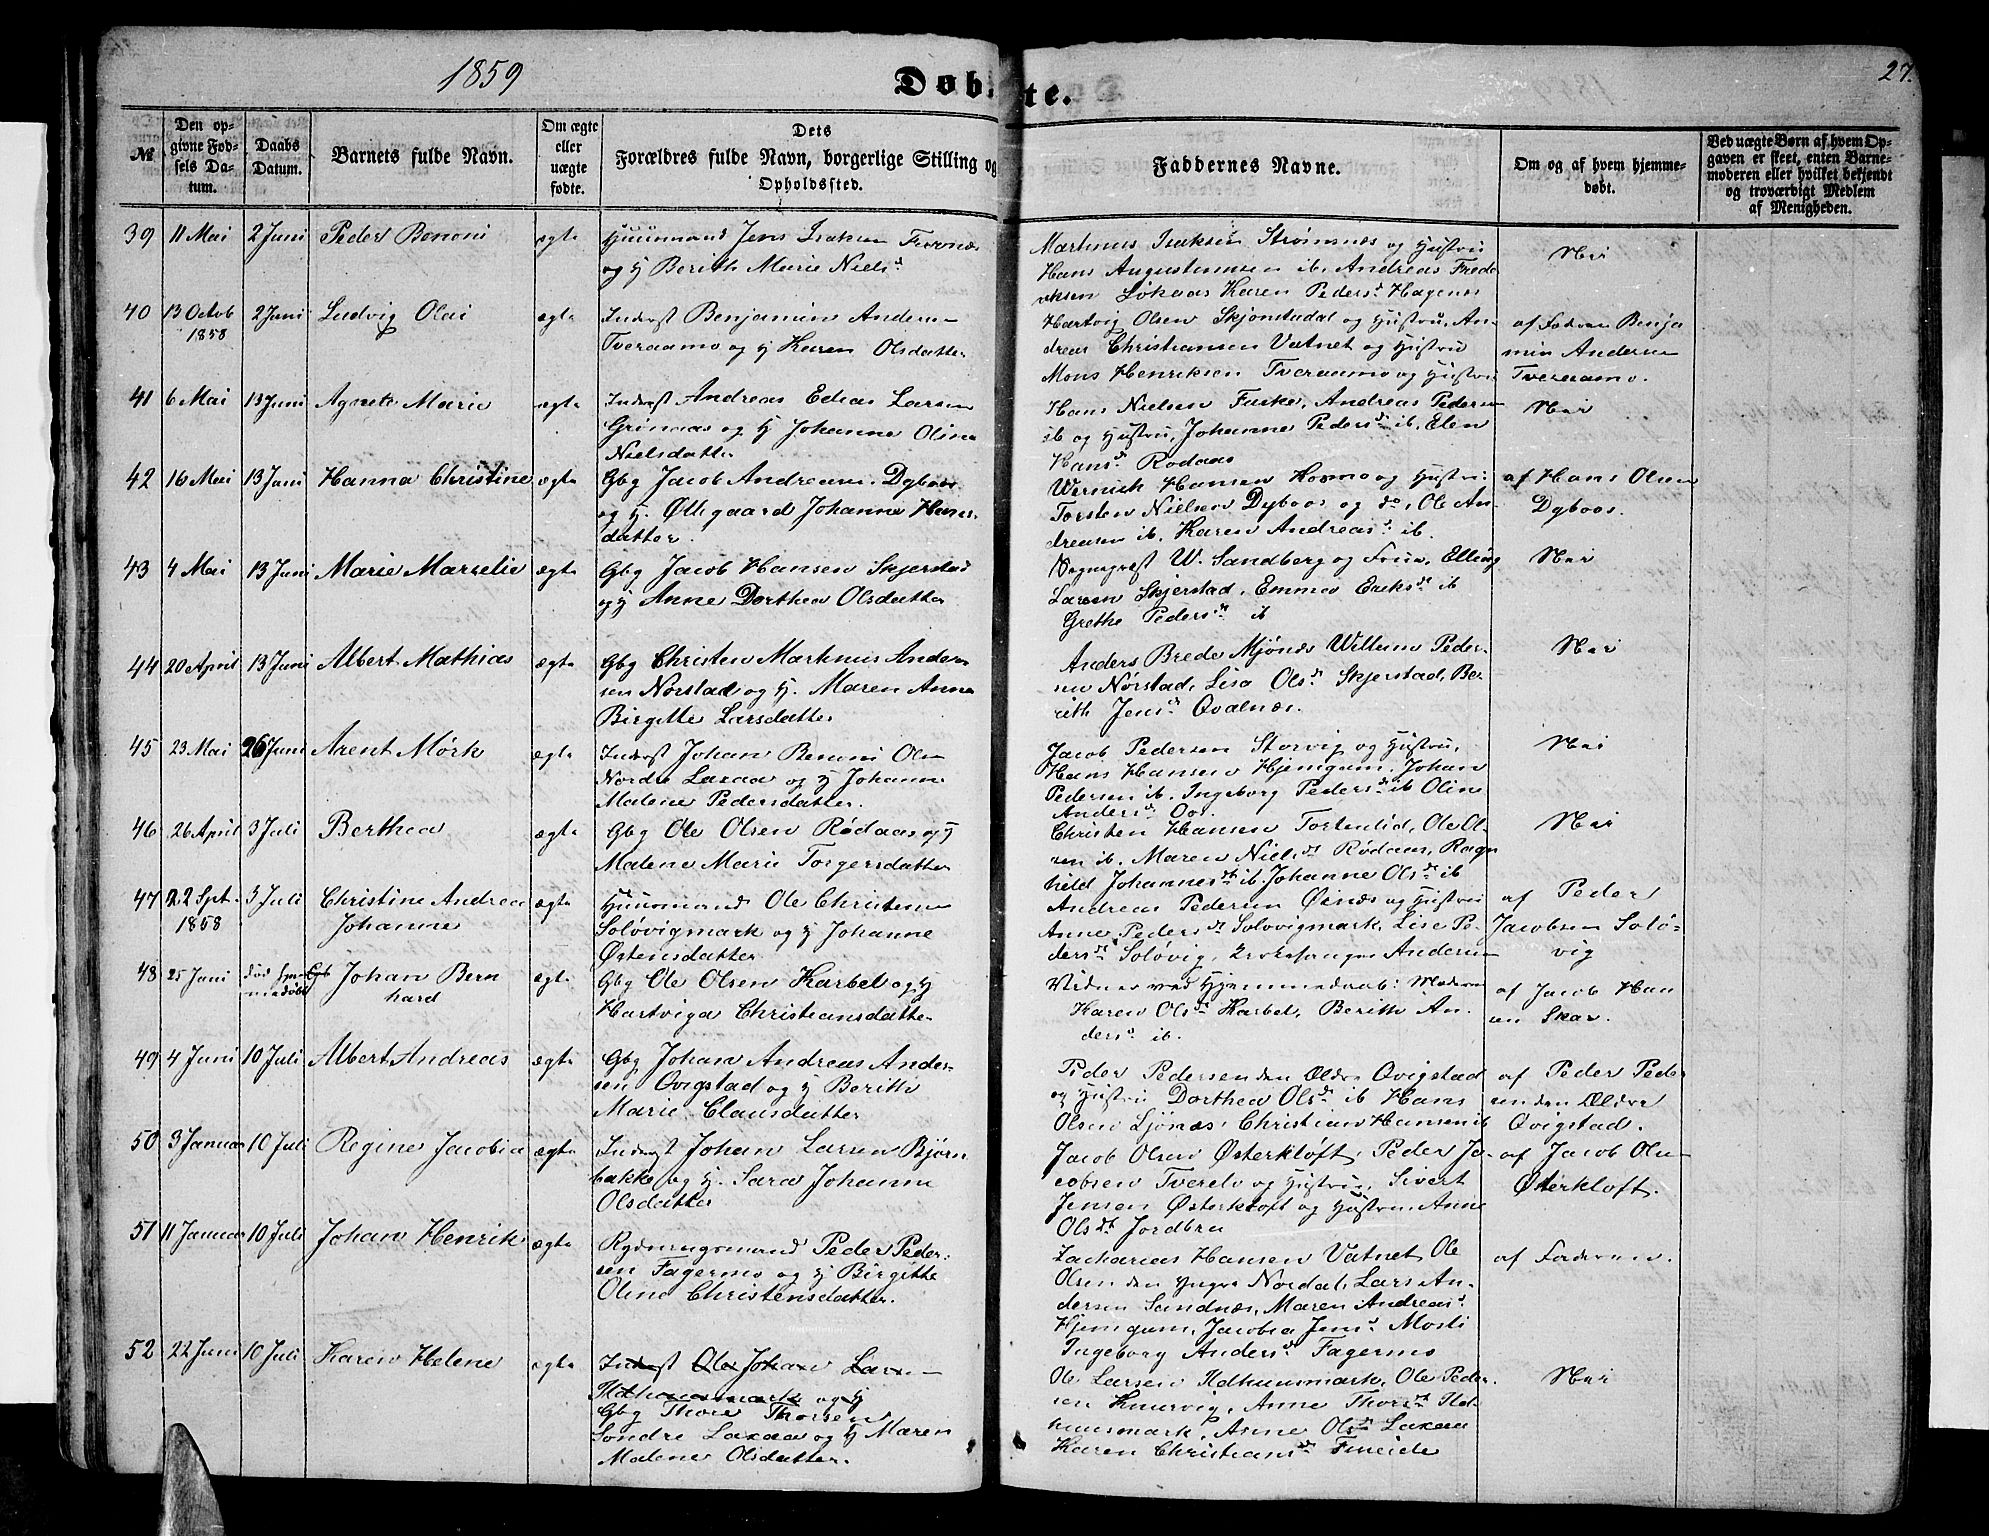 1859
Døbte.
27.
№
Den opgivne Fødsels Datum.
Daabs Datum.
Barnets fulde Navn.
Om ægte eller uægte fødte.
Dets Forældres fulde Navn, borgerlige Stilling og Opholdssted.
Faddernes Navne.
Om og af hvem hjemmedøbt.
Ved uægte Børn af hvem Opgaven er skeet, enten Barnemoderen eller hvilket bekjendt og troværdigt Medlem af Menigheden.
39 11 Mai 2 Juni Peder Bononi ægte Huusmand Jens Isaksen
og H Berith Marie Nielsd
Martinus Isaksen Strømsnæs og Hustru
Hans Augustinussen ib, Andreas Fredr
iksen Løkaas Karen Pedersd Hagenæs
Nei
40 13 Octob 2 Juni Ludvig Olai ægte Inderst Benjamin Andersen
1858
Tveraamo og H Karen Olsdatter
Hartvig Olsen Skjønstadal og Hustru, An-
dreas Christiansen Vatnet og Hustru
Mons Henriksen Tveraamo og Hustru
af Faderen Benja
min Andersen
Tveraamo.
41 6 Mai 13 Juni Agnete Marie ægte Inderst Andreas Edias Larsen
Grønnæs og H Johanne Olina
Nielsdatter
Hans Nielsen Fuske, Andreas Pedersen
ib og Hustru, Johanne Pedersd ib, Elen
Hansd Rødaas
Nei
42 16 Mai 13 Juni Hanna Christine ægte Gbg Jacob Andreasen Dyboos
og H. Øllegaard Johanna Hans-
datter.
Wernich Hansen Kosmo og Hustru
Torsten Nielsen Dyboos og do, Ole An-
dreasen ib, Karen Andreasd ib.
af Hans Olsen
Dyboos.
43 4 Mai 13 Juni Marie Marselie ægte Gbg Jacob Hansen Skjerstad
og H Anne Dorthea Olsdatter
Sognepræst W. Sandberg og Frue, Elling
Larsen Skjerstad, Emma Eriksd ib
Grethe Pedersd ib
Nei
44 20 April 13 Juni Albert Mathias ægte Gbg Christen Markus Ander
sen Nørstad og H. Maren Anna
Birgitte Larsdatter
Anders Brede Mjønæs Willum Peder-
sen Nørstad, Lisa Olsd Skjerstad, Be-
rith Jensd Qvalnæs.
Nei
45 23 Mai 26 Juni Arent Mørk ægte Inderst Johan Benoni Olsen
Nordre Laxaa og H Johanne
Malene Pedersdatter.
Jacob Pedersen Storvig og Hustru,
Hans Hansen Hjemgam, Johan
Pedersen ib, Ingeborg Pedersd ib Olina
Andersd Oos.
Nei
46 26 April 3 Juli Berthea ægte Gbg Ole Olsen Rødaas og H
Malene Marie Torgersdatter
Christen Hansen Tortenlid, Ole Ol-
sen ib, Maren Nielsd Rødaas, Ragn
hild Johannesd ib. Johanne Olsd ib
Nei
47 22 Sept. 3 Juli Christine Andrea ægte Huusmand Ole Christensen
1858 Johanne
Soløvigmark og H Johanne
Østensdatter
Andreas Pedersen Øinæs og Hustru
Anne Pedersd Soløvigmark, Lise Pe-
dersd Soløvig, Andersen
af Peder
Jacobsen Solø-
vig
48 25 Juni død hjem- Johan Bern ægte Gbg Ole Olsen Karbel og H
medøbt hard
Hartviga Christiansdatter
Vidner ved Hjemmedaab: Moderen
Karen Olsd Karbel, Berith An-
dersd ib.
af Jacob Han
sen Skar.
49 4 Juni 10 Juli Albert Andreas ægte Gbg Johan Andreas Ander-
sen Qvigstad og H Berith
Marie Clausdatter
Peder Pedersen den Ældre Qvigstad
og Hustru Dorthea Olsd ib Hans
Olsen Ljønæs, Christian Hansen ib
af Peder Peder
sen den Ældre
Qvigstad.
50 3 Januar 10 Juli Regine Jacobia ægte Inderst Johan Larsen Bjørn
bakke og H. Sara Johanna
Olsdatter
Jacob Olsen Østerkløft, Peder Ja-
cobsen Tverelv og Hustru, Sivert
Jensen Østerkløft og Hustru, Anne
Olsdt Jordbru
af Jacob Olsen
Østerkløft.
51 11 Januar 10 Juli Johan Henrik ægte Rydningsmand Peder Peder-
sen Fagermo og H Birgitte
Olina Christensdatter.
Zacharias Hansen Vatnet Ole
Olsen den Yngre Nordal, Lars An-
dersen Sandnæs, Maren Andreasd
Hjemgam, Jacobia Jensd Mosti
Ingeborg Andersd Fagermo
af Faderen.
52 22 Juni 10 Juli Karen Helene ægte Inderst Ole Johan Larsen
og H
Gbg Thore Thorsen
Søndre Laxaa og H Maren
Malene Olsdatter.
Ole Larsen Ildhuusmark, Ole Peder-
sen Knurvig, Anne Thorsd Ild-
huusmark, Anne Olsd Laxaa
Karen Christiansd Fineide
Nei